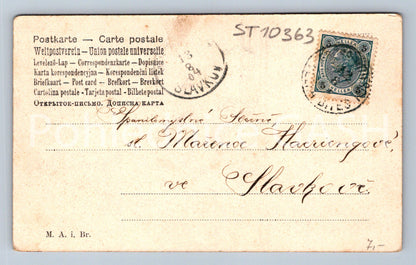 Postkarte – Carte postale
Weltpostverein – Union postale universelle
Levelező-Lap – Correspondenzkarte – Dopisnice
Karta korespondencyjna – Korespondenční lístek
Briefkaart – Post card – Brefkort – Brevkort
Cartolina postale – Tarjeta postal – Bilhete postal
ОТКРЫТОЕ-ПИСЬМО. ДОПИСНА КАРТА
ST10363
SLAVKOV
sl. Mařence
ve
Slavkově
M. A. i. Br.
7,-